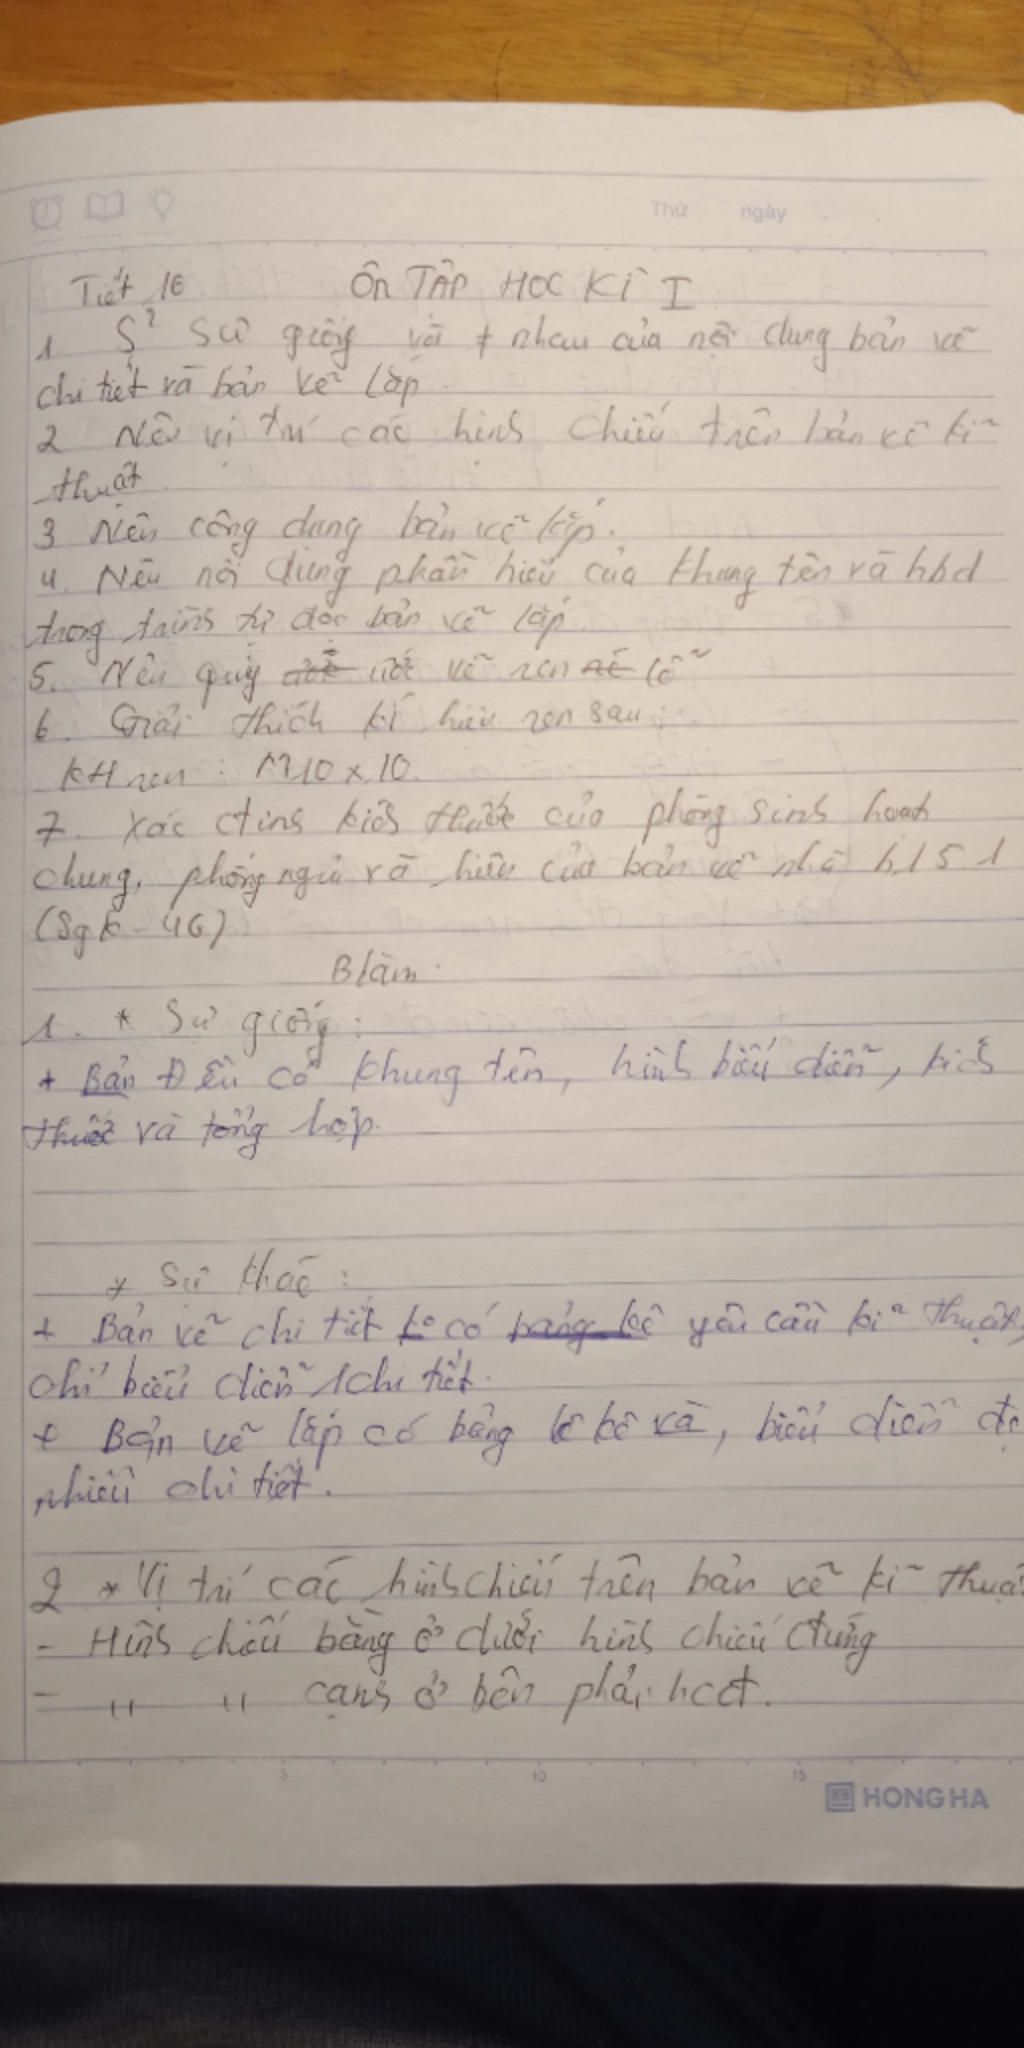 Thứ ngày
Tiết 16 ÔN TẬP HỌC KÌ I
1. S² Sự giống và ≠ nhau của nội dung bản vẽ
chi tiết và bản vẽ lắp.
2 Nêu vị trí các hình chiếu trên bản vẽ kĩ
thuật
3 Nêu công dụng bản vẽ lắp.
4. Nêu nội dung phần hiểu của khung tên và hbd
trong trình tự đọc bản vẽ lắp
5. Nêu quy ước vẽ ren lỗ
6. Giải thích kí hiệu ren sau:
KH ren: M10 x 10.
7. Xác định kích thước của phòng sinh hoạt
chung, phòng ngủ và hiên của bản vẽ nhà h15.1
(Sgk - 46)
Blàm.
1. * Sự giống:
+ Bản Đều có khung tên, hình biểu diễn, kích
thước và tổng hợp.
* Sự khác:
+ Bản vẽ chi tiết có yêu cầu kĩ thuật,
chỉ biểu diễn 1 chi tiết.
+ Bản vẽ lắp có bảng kê, biểu diễn
nhiều chi tiết.
2 * Vị trí các hình chiếu trên bản vẽ kĩ thuật
- Hình chiếu bằng ở dưới hình chiếu đứng
- " " cạnh ở bên phải hcđ.
5 10 15
HONG HA